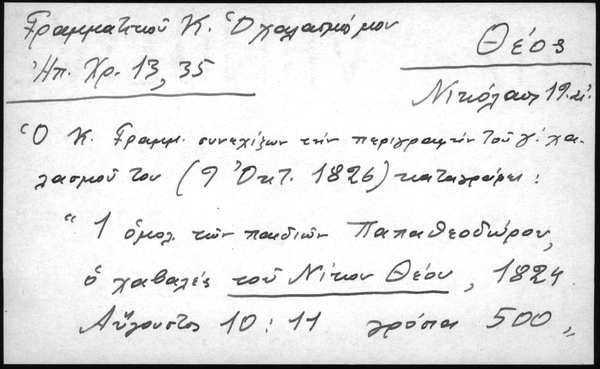 Γραμματικοῦ Κ. Ὁ χαλασμός μου
Ἠπ. Χρ. 13, 35
Θέος
Νικόλαος 19. αἰ.
Ὁ Κ. Γραμμ. συνεχίζων τὴν περιγραφὴν τοῦ γ΄ χα-
λασμοῦ του (9 Ὀκτ. 1826) καταγράφει:
" 1 ὁμολ. τῶν παιδιῶν Παπαθεοδώρου,
ὁ χαβαλές τοῦ Νίκου Θέου, 1824
Αὔγουστος 10 : 11 γρόσια 500 „